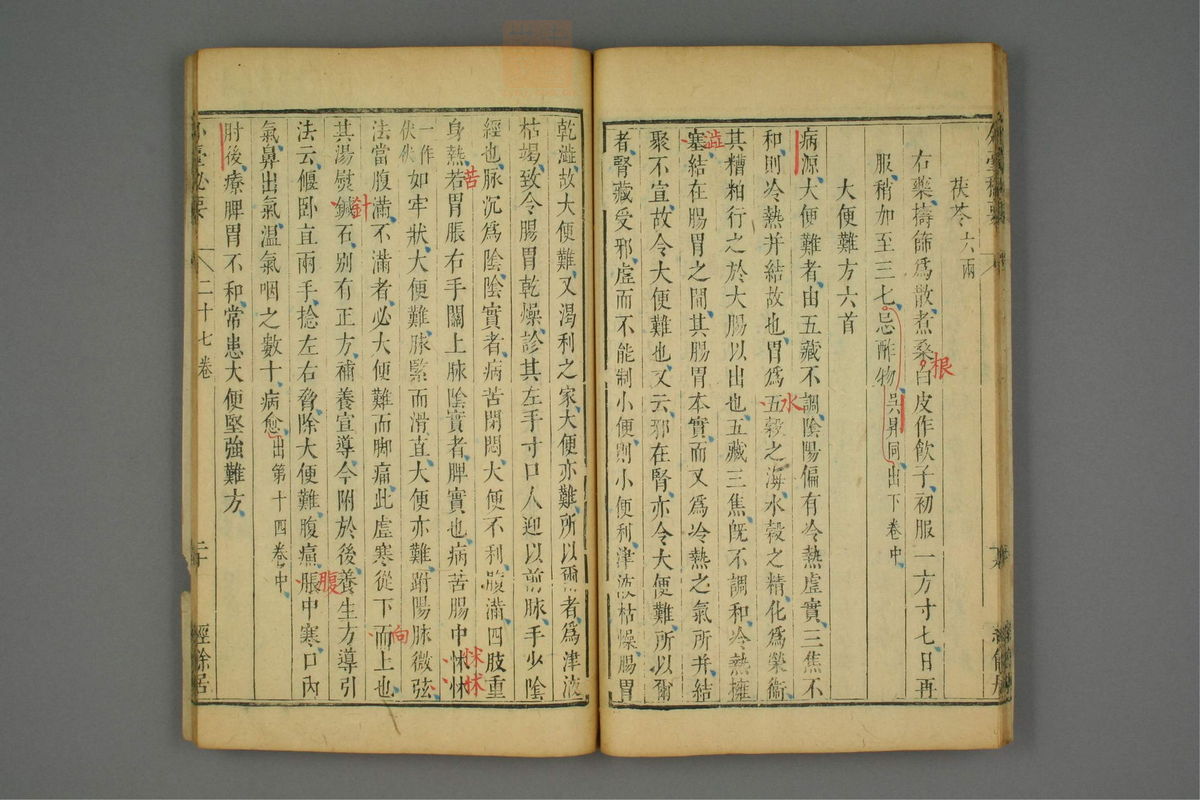 茯苓六兩
右藥擣篩爲散煮桑白皮作飲子初服一方寸七日再
根
服稍如至三七忌酢物吳昇同出下卷中
大便難方六首
病源大便難者由五藏不調陰陽偏有冷熱虛實三焦不
和則冷熱并結故也胃爲五穀之海水穀之精化爲榮衞
水
其糟粕行之於大腸以出也五藏三焦旣不調和冷熱擁
澁
塞結在腸胃之間其腸胃本實而又爲冷熱之氣所并結
聚不宣故令大便難也又云邪在腎亦令大便難所以爾
者腎藏受邪虛而不能制小便則小便利津液枯燥腸胃
乾澁故大便難又渴利之家大便亦難所以爾者爲津液
枯竭致令腸胃乾燥診其左手寸口人迎以前脉手少陰
經也脉沉爲陰陰實者病苦閉悶大便不利腹滿四肢重
身熱若胃脹右手關上脉陰實者脾實也病苦腸中怵怵
苦
怺怺
一作伏伏如牢狀大便難脉緊而滑直大便亦難趺陽脉微弦
法當腹滿不滿者必大便難而脚痛此虛寒從下而上也
向
其湯熨鍼石別有正方補養宣導今附於後養生方導引
針
法云偃卧直兩手捻左右脅除大便難腹痛脹中寒口內
腹
氣鼻出氣溫氣咽之數十病愈出第十四卷中
肘後療脾胃不和常患大便堅強難方
外臺秘要
二十七卷
二十
經餘居